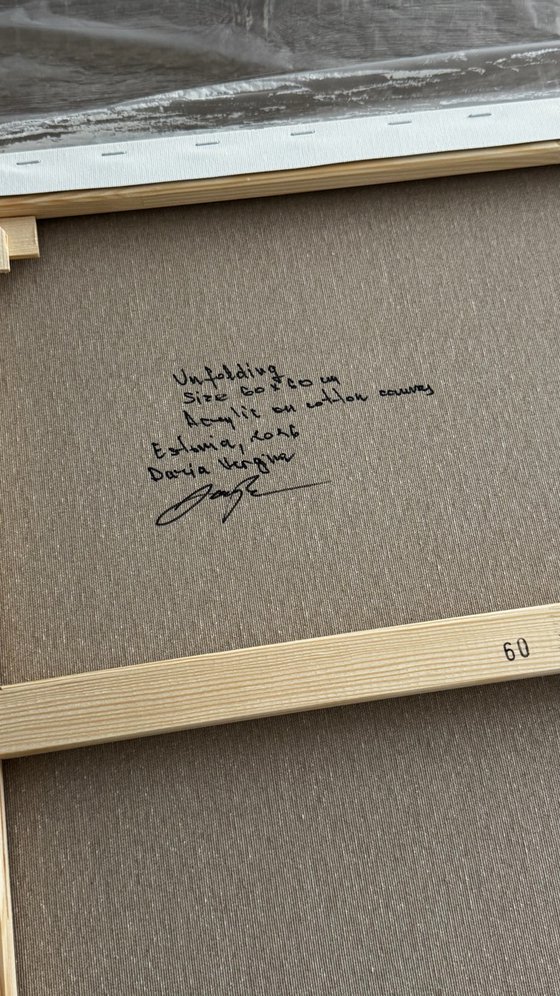 Unfolding
Size 60x60 cm
Acrylic on cotton canvas
Estonia, 2026
Daria Vergina
60